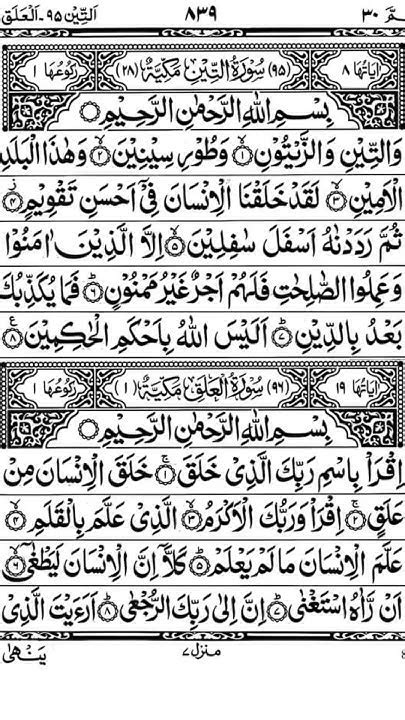 التِّيْن ٩٥-الْعَلَق ٨٣٩ عَمَّ ٣٠
اٰيَاتُهَا ٨ (٩٥) سُوْرَةُ التِّيْنِ مَكِّيَّةٌ (٢٨) رُكُوْعُهَا ١
بِسْمِ اللّٰهِ الرَّحْمٰنِ الرَّحِيْمِ
وَالتِّيْنِ وَالزَّيْتُوْنِ ١ وَطُوْرِ سِيْنِيْنَ ٢ وَهٰذَا الْبَلَدِ
الْاَمِيْنِ ٣ لَقَدْ خَلَقْنَا الْاِنْسَانَ فِيْٓ اَحْسَنِ تَقْوِيْمٍ ٤
ثُمَّ رَدَدْنٰهُ اَسْفَلَ سٰفِلِيْنَ ٥ اِلَّا الَّذِيْنَ اٰمَنُوْا
وَعَمِلُوا الصّٰلِحٰتِ فَلَهُمْ اَجْرٌ غَيْرُ مَمْنُوْنٍ ٦ فَمَا يُكَذِّبُكَ
بَعْدُ بِالدِّيْنِ ٧ اَلَيْسَ اللّٰهُ بِاَحْكَمِ الْحٰكِمِيْنَ ٨
اٰيَاتُهَا ١٩ (٩٦) سُوْرَةُ الْعَلَقِ مَكِّيَّةٌ (١) رُكُوْعُهَا ١
بِسْمِ اللّٰهِ الرَّحْمٰنِ الرَّحِيْمِ
اِقْرَاْ بِاسْمِ رَبِّكَ الَّذِيْ خَلَقَ ١ خَلَقَ الْاِنْسَانَ مِنْ
عَلَقٍ ٢ اِقْرَاْ وَرَبُّكَ الْاَكْرَمُ ٣ الَّذِيْ عَلَّمَ بِالْقَلَمِ ٤
عَلَّمَ الْاِنْسَانَ مَا لَمْ يَعْلَمْ ٥ كَلَّآ اِنَّ الْاِنْسَانَ لَيَطْغٰٓى ٦
اَنْ رَّاٰهُ اسْتَغْنٰى ٧ اِنَّ اِلٰى رَبِّكَ الرُّجْعٰى ٨ اَرَءَيْتَ الَّذِيْ
منزل ٧ يَنْهٰى